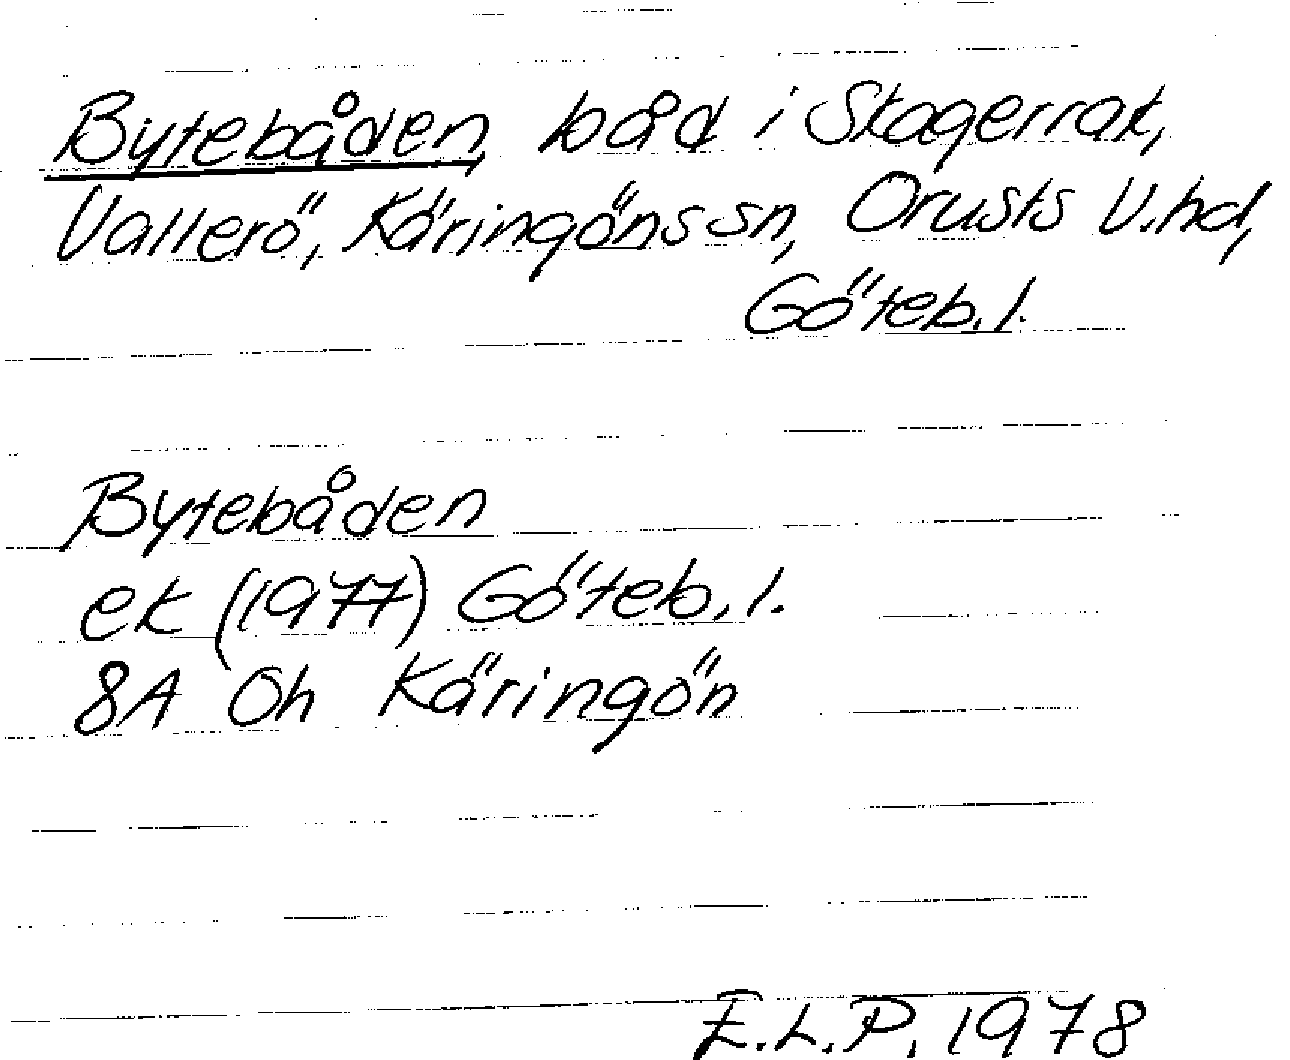 Bytebåden, båd i Skagerrak,
Vallerö, Käringöns sn, Orusts V. hd,
Göteb. l.
Bytebåden
ek (1977) Göteb. l.
8A 0h Käringön
E.L.P. 1978